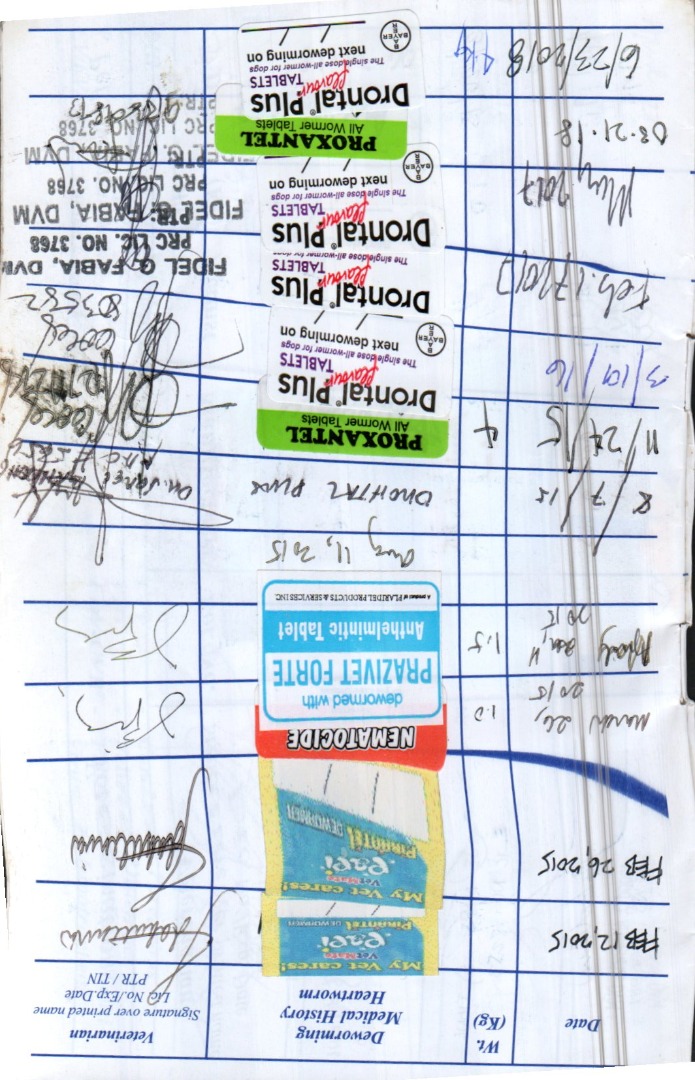 Date
Wt.
(Kg)
Deworming
Medical History
Heartworm
Veterinarian
Signature over printed name
Lic No./Exp.Date
PTR / TIN
FEB 12, 2015
My Vet cares!
VetMate
Papi
Pirantel
DEWORMER
FEB 26, 2015
My Vet cares!
VetMate
Papi
PIRANTEL
DEWORMER
March 26,
2015
1.2
NEMATOCIDE
dewormed with
PRAZIVET FORTE
Anthelmintic Tablet
A product of PLARIDEL PRODUCTS & SERVICES INC.
2015
1.5
Aug 11, 2015
8/7/15
DRONTAL PLUS
11/27/15
4
PROXANTEL
All Wormer Tablets
3/19/16
Drontal® Plus
flavour
TABLETS
The single dose all-wormer for dogs
next deworming on
BAYER
Feb. 17, 2017
Drontal® Plus
flavour
TABLETS
The single dose all-wormer for dogs
FIDEL G. FABIA, DVM
PRC LIC. NO. 3768
PTR.
May 2017
Drontal® Plus
flavour
TABLETS
The single dose all-wormer for dogs
next deworming on
BAYER
FIDEL G. FABIA, DVM
PRC LIC. NO. 3768
PTR.
03-21-18
PROXANTEL
All Wormer Tablets
FIDEL G. FABIA, DVM
PRC LIC. NO. 3768
PTR.
6/23/2018
4 kg
Drontal® Plus
flavour
TABLETS
The single dose all-wormer for dogs
next deworming on
BAYER